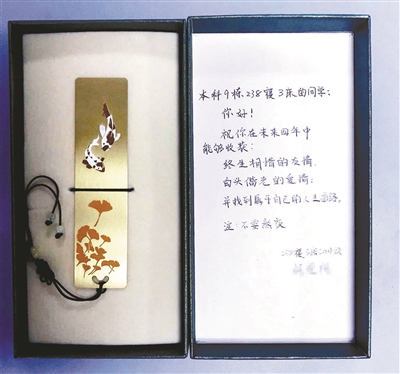 本科9栋238寝3床的同学：
你好！
祝你在未来四年中
能够收获：
终生相惜的友情，
白头偕老的爱情；
并找到属于自己的人生道路。
注：不要熬夜